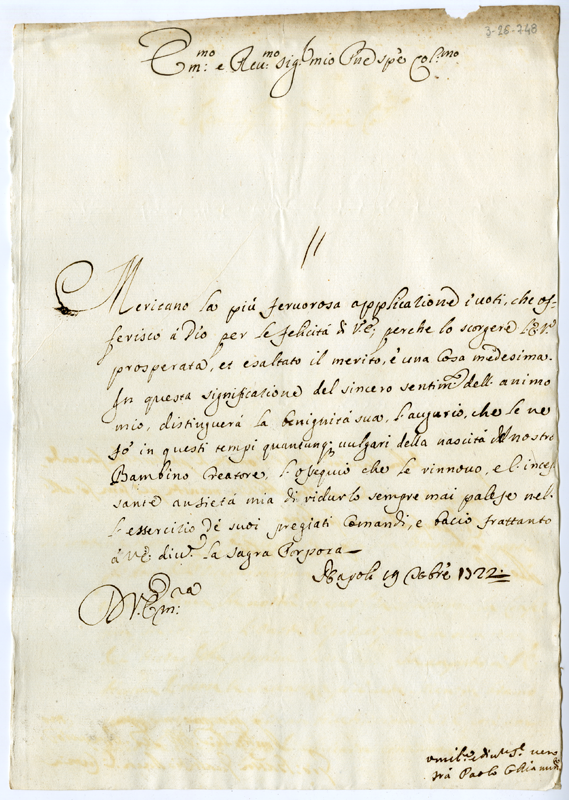 3-26-748
Em:mo e Reu:mo Sig:r mio Pne Col:mo
Mericano la più feruorosa applicatione i uoti, che of-
ferisco à Dio per le felicità di V.E; perche lo scorgere
prosperata, et esaltato il merito, è una cosa medesima.
In questa significatione del sincero sentim:to dell'animo
mio, distinguerà la benignità sua, l'augurio, che le ne
fò in questi tempi quantunq; uulgari della nascità del nostro
Bambino Creatore, l'osequio che le rinnouo, e l'inces-
sante ansietà mia di ridurlo sempre mai palese nel-
l'essercitio de suoi pregiati Comandi, e bacio frattanto
à V.E: diu:te la Sagra Porpora
Napoli 19 Xbre 1722:
D V. Em:za
umil:e diu:
frà Paolo